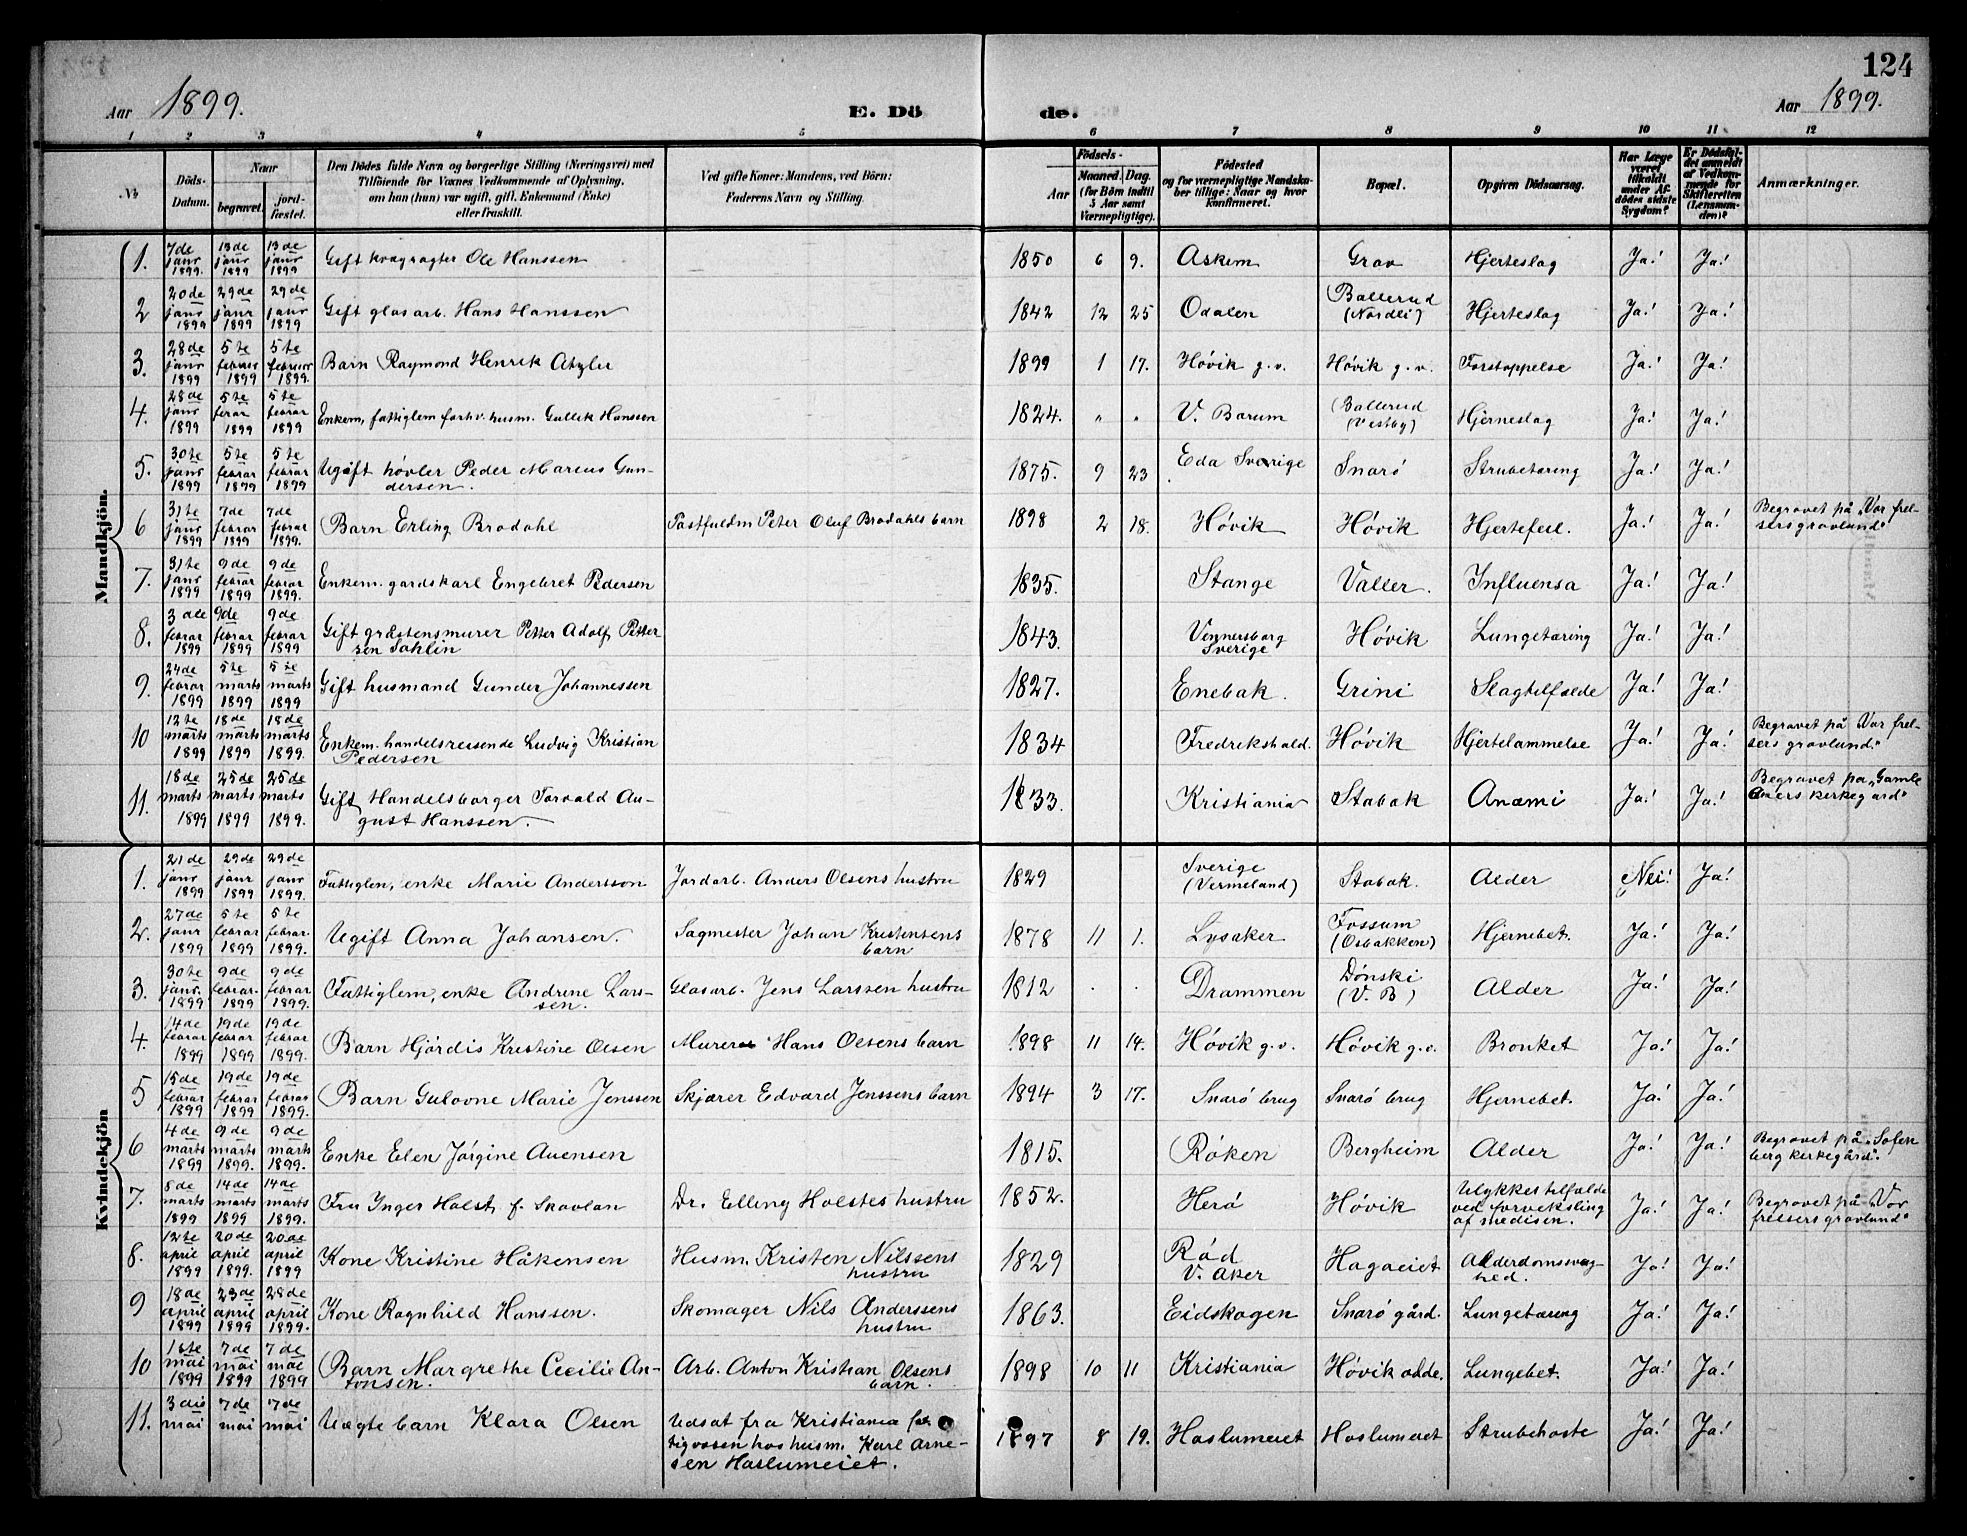 124
Aar 1899.
E. Döde.
Aar 1899.
1 2 3 4 5 6 7 8 9 10 11 12
№
Döds-Datum.
Naar
begravet.
jordfæstet.
Den Dödes fulde Navn og borgerlige Stilling (Næringsvei) med
Tilföiende for Voxnes Vedkommende af Oplysning,
om han (hun) var ugift, gift, Enkemand (Enke)
eller fraskilt.
Ved gifte Koner: Mandens, ved Börn:
Faderens Navn og Stilling.
Födsels-
Aar
Maaned. Dag.
(for Börn indtil
5 Aar samt
Værnepligtige).
Födested
og for værnepligtige Mandska-
ber tillige: Naar og hvor
konfirmeret.
Bopæl.
Opgiven Dödsaarsag.
Har Læge
været
tilkaldt
under Af-
dödes sidste
Sygdom?
Er Dödsfal-
det anmeldt
af Vedkom-
mende for
Skifteretten
(Lensman-
den)?
Anmærkninger.
Mandkjön.
1. 7de janr 1899. 13de janr 1899 13de janr 1899 Gift kvægrøgter Ole Hanssen 1850 6 9. Askem Grav Hjerteslag Ja! Ja!
2 20de janr 1899 29de janr 1899 29de janr 1899 Gift glasarb. Hans Hanssen 1842 12 25 Odalen Ballerud (Nordli) Hjerteslag Ja! Ja!
3. 28de janr 1899 5te februar 1899 5te februar 1899. Barn Raymond Henrik Atzler 1899 1 17. Høvik g.v. Høvik g.v. Forstoppelse Ja! Ja!
4. 28de janr 1899 5te ferar 1899 5te febrar 1899 Enkem, fattiglem forhv. husm. Gullik Hanssen 1824. " " V. Bærum Ballerud (Vestby) Hjerneslag Ja! Ja!
5. 30te janr 1899 5te febrar 1899 5te febrar 1899 Ugift høvler Peder Marcus Gun-
dersen. 1875. 9 23 Eda Sverige Snarø Strubetæring Ja! Ja!
6 31te janr 1899 7de febrar 1899 7de febrar 1899. Barn Erling Brodahl Postfuldm Peter Oluf Brodahls barn 1898 2 18. Høvik Høvik Hjertefeil. Ja! Ja! Begravet på "Vor frel-
sers gravlund"
7. 31te janr 1899 9de febrar 1899 9de febrar 1899 Enkem. gardskarl Engebret Pedersen 1835. Stange Valler. Influensa Ja! Ja!
8. 3die febrar 1899 9de febrar 1899 9de febrar 1899 Gift gråstensmurer Petter Adolf Petter
sen Sohlin 1843. Vennersborg Sverige Høvik Lungetæring Ja! Ja!
9. 24de febrar 1899 5te marts 1899 5te marts 1899 Gift husmand Gunder Johannessen 1827. Enebak. Grini Slagtilfælde Ja! Ja!
10 12te marts 1899 18de marts 1899 18de marts 1899. Enkem. handelsreisende Ludvig Kristian
Pedersen 1834 Fredrikshald. Høvik Hjertelammelse Ja! Ja! Begravet på "Vor frel-
sers gravlund."
11. 18de marts 1899 25de marts 1899 25de marts 1899. Gift Handelsborger Torvald Au-
gust Hanssen. 1833. Kristiania Stabæk Anæmi Ja! Ja! Begravet på "Gamle
Akers kirkegård"
Kvindekjön
1. 21de janr 1899 29de janr 1899 29de janr 1899. Fattiglem, enke Marie Andersson Jordarb. Anders Olsens hustru 1829 Sverige (Vermeland) Stabæk. Alder Nei! Ja!
2. 27de janr 1899 5te febrar 1899 5te febrar. 1899. Ugift Anna Johansen. Sagmester Johan Kristensens
barn 1878 11 1. Lysaker Fossum (Osbakken) Hjernebet. Ja! Ja!
3. 30te janr. 1899 9de febrar. 1899 9de febrar 1899. Fattiglem, enke Andrine Lars-
sen. Glasarb. Jens Larssen hustru 1812 . . Drammen Dønski (V. B) Alder Ja! Ja!
4. 14de febrar 1899 19de febrar 1899 19de febrar 1899. Barn Hjørdis Kristine Olsen Murer Hans Olsens barn 1898 11 14. Høvik g.v. Høvik g.v. Bronket Ja! Ja!
5 15de febrar 1899 19de febrar 1899 19de febrar 1899. Barn Gulovne Marie Jenssen Skjærer Edvard Jenssens barn 1894 3 17. Snarø brug Snarø brug Hjernebet. Ja! Ja!
6 4de marts 1899 9de marts 1899. 9de marts 1899. Enke Elen Jørgine Auensen 1815. Røken Bergheim Alder Ja! Ja! Begravet på "Sofien
berg kirkegård".
7. 8de marts 1899 14de marts 1899 14de marts 1899. Fru Inger Holst f. Skavlan Dr. Elling Holstes hustru 1852. Herø Høvik Ulykkestilfælde
ved forveksling
af medisen. Ja! Ja! Begravet på "Vor
frelsers gravlund"
8. 12te april 1899 20de april 1899. 20de april 1899 Kone Kristine Håkensen Husm. Kristen Nilssens
hustru 1829 Rød V. Aker Hagaeiet Alderdomssvag-
hed. Ja! Ja!
9 18de april 1899 23de april 1899 28de april 1899. Kone Ragnhild Hanssen. Skomager Nils Anderssens
hustru 1863. Eidskogen Snarø gård. Lungetæring Ja! Ja!
10 1ste mai 1899 7de mai 1899 7de mai 1899 Barn Margrethe Cecilie An-
tonsen. Arb. Anton Kristian Olsens
barn. 1898 10 11 Kristiania Høvik odde. Lungebet. Ja! Ja!
11. 3die mai 7de mai 7de mai Uægte barn Klara Olsen Udsat fra Kristiania fat
tigvæsen hos husm. Karl Arne-
sen Haslumeiet. 1897 8 19. Haslumeiet Haslumeiet Strubehoste Ja! Ja!